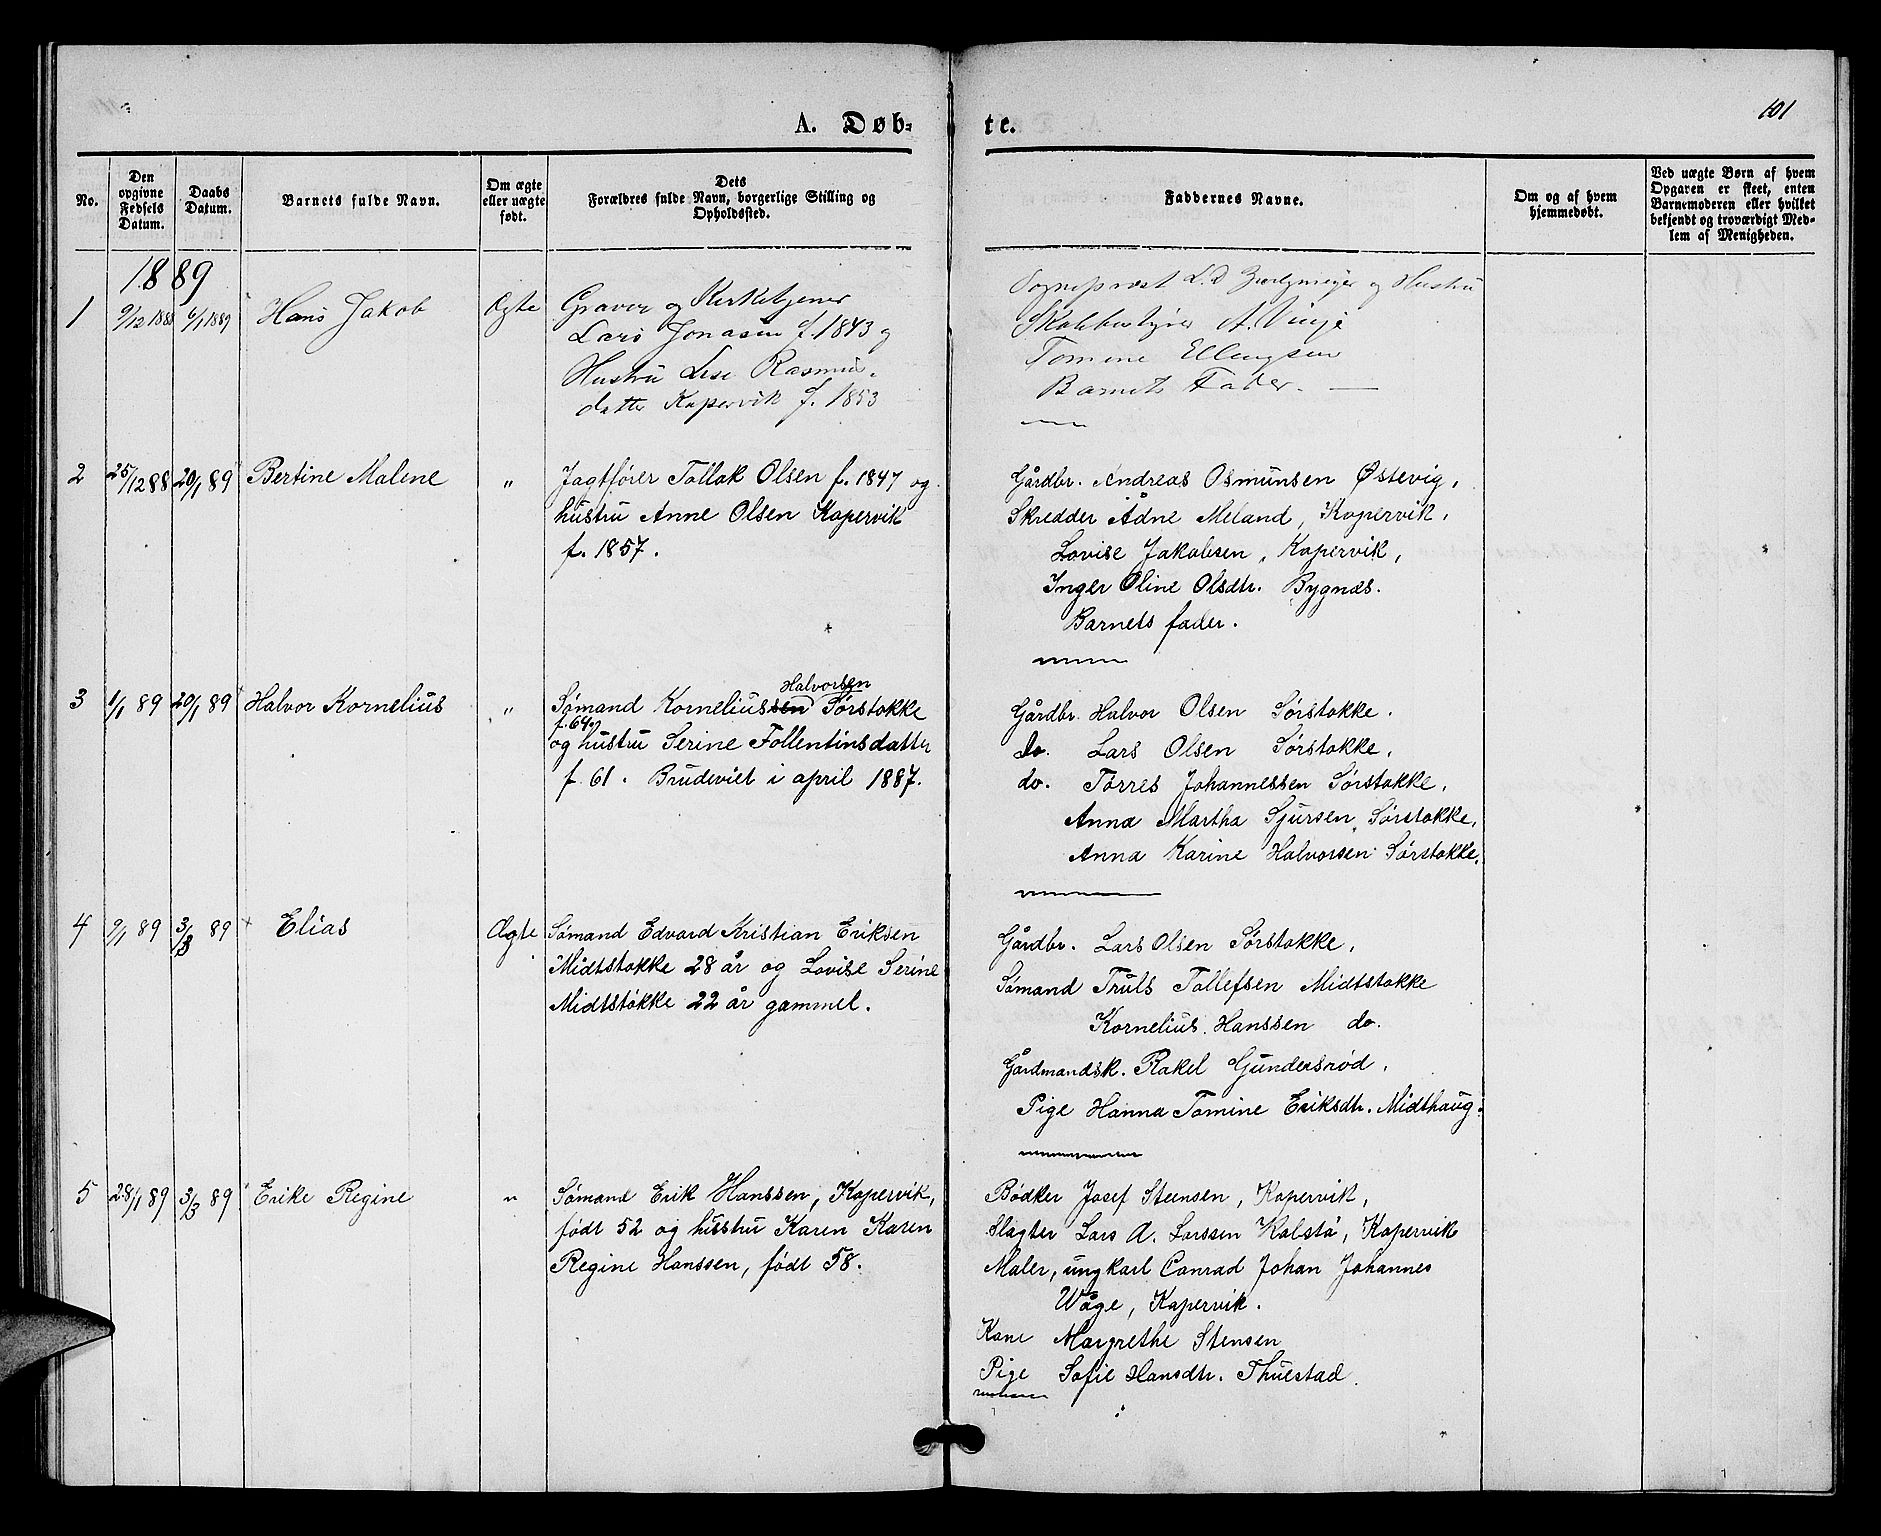 101
A. Døb-te.
No.
Den opgivne Fødsels Datum.
Daabs Datum.
Barnets fulde Navn.
Om ægte eller uægte født.
Dets Forældres fulde Navn, borgerlige Stilling og Opholdssted.
Faddernes Navne.
Om og af hvem hjemmedøbt.
Ved uægte Børn af hvem Opgaven er skeet, enten Barnemoderen eller hvilket bekjendt og troværdigt Medlem af Menigheden.
1889
1 9/12 1888 6/1 1889 Hans Jakob Ægte Graver og Kirketjener
Lars Jonasen f. 1843 og
Hustru Lise Rasmus-
datter Kopervik f. 1853
Sogneprest L. D. og Hustru
Skolebestyrer A. Vinje
Tomine Ellingsen
Barnets Fader. —
2 25/12 88 20/1 89 Bertine Malene " Jagtfører Tollak Olsen f. 1847 og
hustru Anne Olsen Kopervik
f. 1857.
Gårdbr. Andreas Osmunsen Østevig,
Skredder Ådne Meland, Kopervik,
Lovise Jakobsen, Kopervik,
Inger Oline Olsdtr. Bygnæs.
Barnets fader.
3 1/1 89 20/1 89 Halvor Kornelius " Sømand Korneliussen Halvorsen Sørstokke
f. 64
og hustru Serine Follentinsdatter
f. 61. Brudeviet i april 1887.
Gårdbr. Halvor Olsen Sørstokke.
do. Lars Olsen Sørstokke,
do. Tørres Johannessen Sørstokke,
Anna Martha Sjursen, Sørstokke,
Anna Karine Halvorsen Sørstokke.
4 9/1 89 3/3 89 Elias Ægte Sømand Edvard Kristian Eriksen
Midtstokke 28 år og Lovise Serine
Midtstokke 22 år gammel.
Gårdbr. Lars Olsen Sørstokke,
Sømand Truls Tollefsen Midtstokke
Kornelius Hanssen do.
Gårdmandsk. Rakel Gundersrød,
Pige Hanna Tomine Eriksdtr. Midthaug.
5 28/1 89 3/3 89 Erike Regine " Sømand Erik Hanssen, Kopervik,
født 52 og hustru Karen Karen
Regine Hanssen, født 58.
Bødker Josef Steensen, Kopervik,
Slagter Lars A. Larssen Kalstå, Kopervik
Maler, ungkarl Conrad Johan Johannes
Våge, Kopervik.
Kone Margrethe Stensen
Pige Sofie Hansdtr. Thuestad.